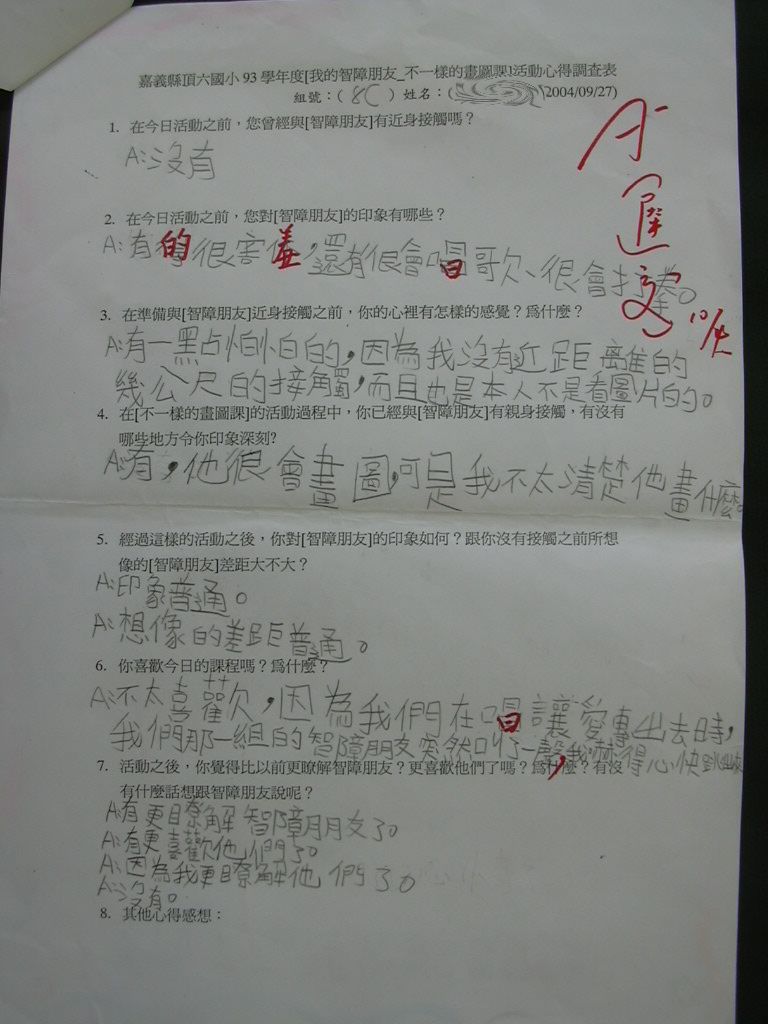 嘉義縣頂六國小93學年度[我的智障朋友_不一樣的畫圖課]活動心得調查表
組號：( 8C ) 姓名：( 2004/09/27)
1. 在今日活動之前，您曾經與[智障朋友]有近身接觸嗎？
A:沒有
2. 在今日活動之前，您對[智障朋友]的印象有哪些？
A:有的很害羞,還有很會唱歌、很會打拳。
3. 在準備與[智障朋友]近身接觸之前，你的心裡有怎樣的感覺？為什麼？
A:有一點怕怕的,因為我沒有近距離的
幾公尺的接觸,而且也是本人不是看圖片的。
4. 在[不一樣的畫圖課]的活動過程中，你已經與[智障朋友]有親身接觸，有沒有
哪些地方令你印象深刻?
A:有,他很會畫圖,可是我不太清楚他畫什麼。
5. 經過這樣的活動之後，你對[智障朋友]的印象如何？跟你沒有接觸之前所想
像的[智障朋友]差距大不大？
A:印象普通。
A:想像的差距普通。
6. 你喜歡今日的課程嗎？為什麼？
A:不太喜歡,因為我們在唱讓愛專出去時,
我們那一組的智障朋友突然叫了一聲,我嚇得心快跳出來
7. 活動之後，你覺得比以前更瞭解智障朋友？更喜歡他們了嗎？為什麼？有沒
有什麼話想跟智障朋友說呢？
A:有更瞭解智障朋友了。
A:有更喜歡他們了。
A:因為我更瞭解他們了。
A:沒有。
8. 其他心得感想：
A-
10/4